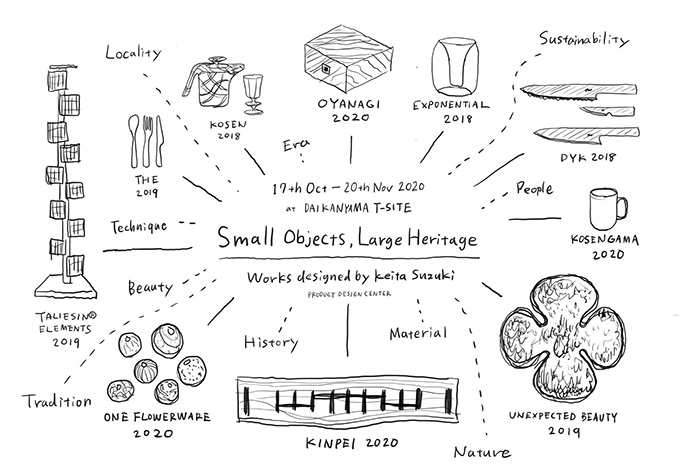 Locality
Sustainability
KOSEN
2018
OYANAGI
2020
EXPONENTIAL
2018
DYK 2018
THE
2019
Era
17th Oct — 20th Nov 2020
at DAIKANYAMA T-SITE
People
KOSENGAMA
2020
Technique
Small Objects, Large Heritage
Works designed by Keita Suzuki
PRODUCT DESIGN CENTER
Beauty
TALIESIN®
ELEMENTS
2019
History
Material
Tradition
ONE FLOWERWARE
2020
KINPEI 2020
UNEXPECTED BEAUTY
2019
Nature